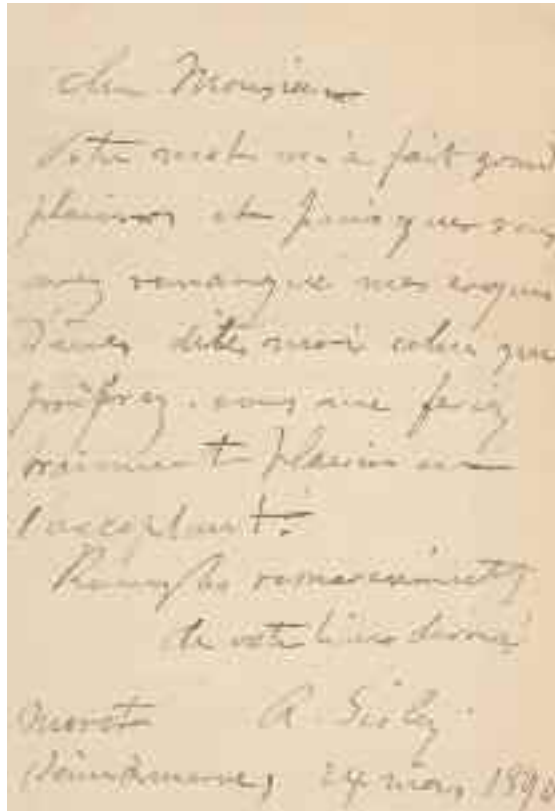 cher Monsieur
Votre mot m'a fait grand
plaisir et puisque vous
avez remarqué mes croquis
d'ânes dites moi celui que
préférez. vous me feriez
vraiment plaisir en
l'acceptant.
Recevez les remerciements
de votre bien dévoué
A. Sisley
Moret
(Seine & marne) 24 mars 189